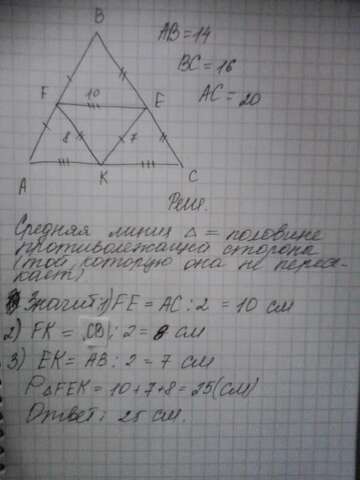 B
AB=14
BC=16
AC=20
F 10 E
8 7
A K C
Реше.
Средняя линия △ = половине
противолежащиа сторона
(той которую она не пересе-
кает)
Значит 1) FE = AC:2 = 10 см
2) FK = CB:2=8 см
3) EK = AB:2=7 см
P△FEK=10+7+8=25(см)
Ответ: 25 см.